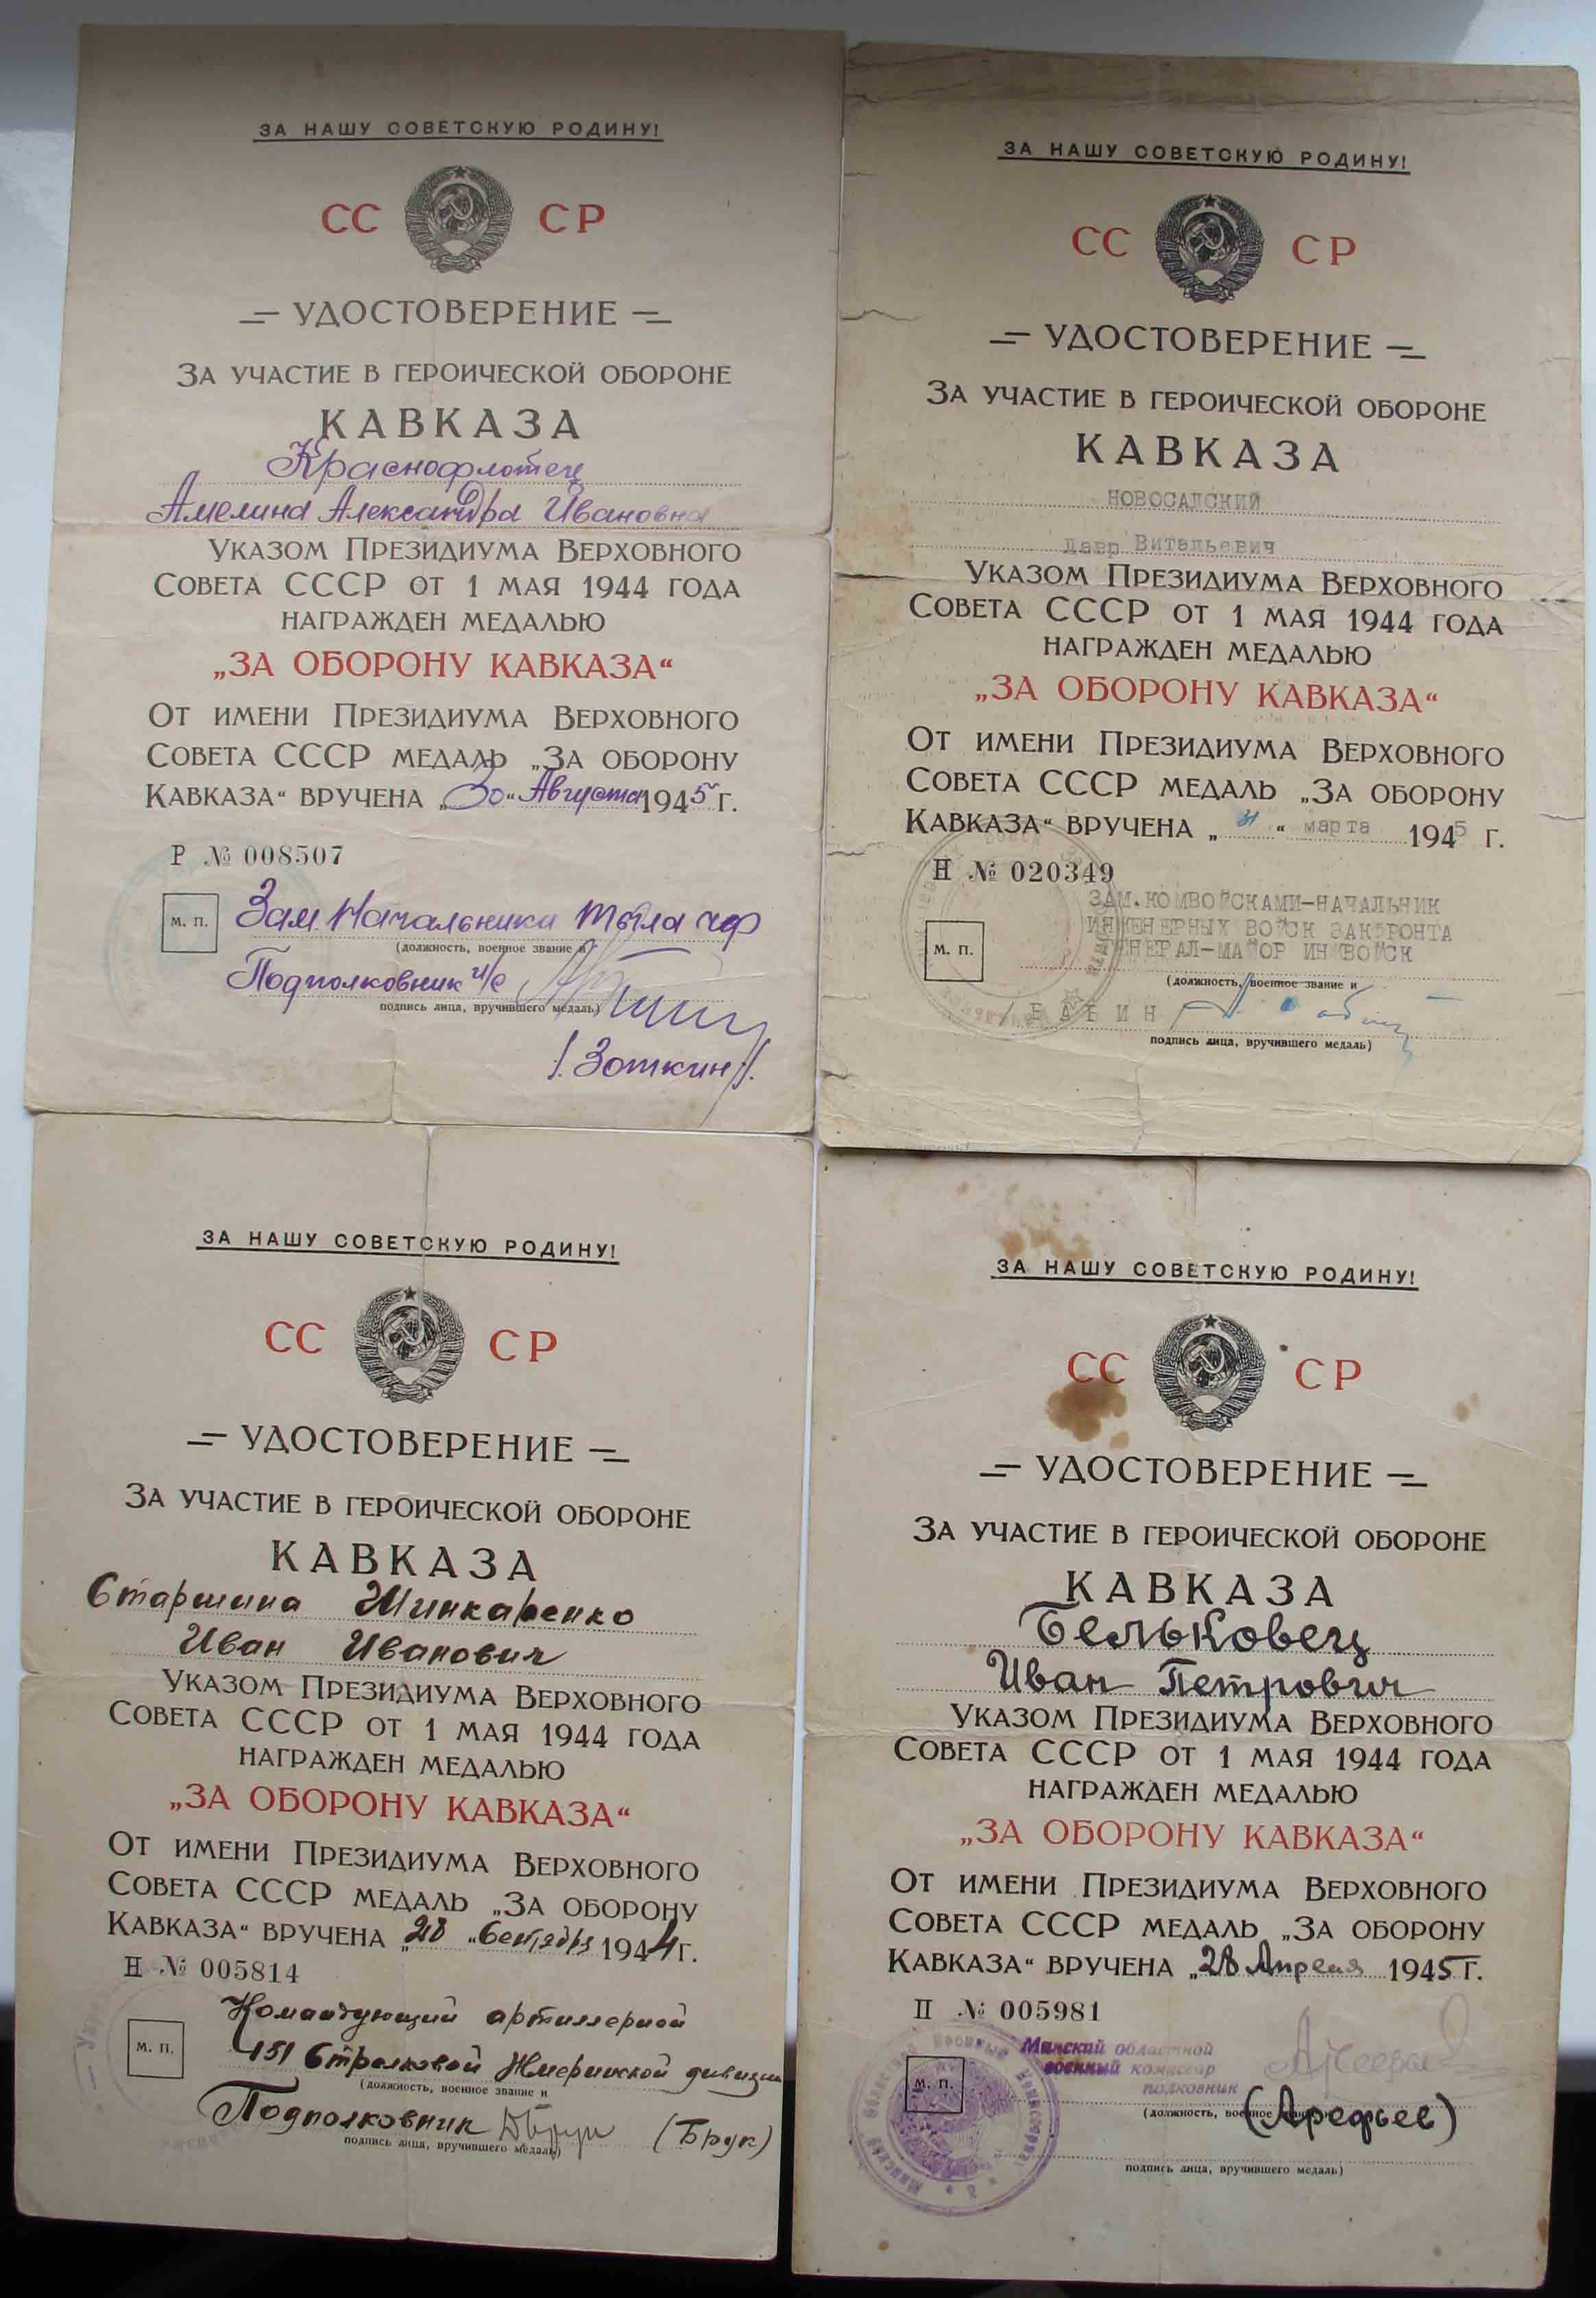 ЗА НАШУ СОВЕТСКУЮ РОДИНУ!
СС СР
УДОСТОВЕРЕНИЕ
ЗА УЧАСТИЕ В ГЕРОИЧЕСКОЙ ОБОРОНЕ
КАВКАЗА
Краснофлотец
Амелина Александра Ивановна
УКАЗОМ ПРЕЗИДИУМА ВЕРХОВНОГО
СОВЕТА СССР ОТ 1 МАЯ 1944 ГОДА
НАГРАЖДЕН МЕДАЛЬЮ
„ЗА ОБОРОНУ КАВКАЗА“
ОТ ИМЕНИ ПРЕЗИДИУМА ВЕРХОВНОГО
СОВЕТА СССР МЕДАЛЬ „ЗА ОБОРОНУ
КАВКАЗА“ ВРУЧЕНА „30“ Августа 1945 Г.
Р № 008507
м. п.
Зам. Начальника тыла чф
(должность, военное звание и
Подполковник и/с
подпись лица, вручившего медаль)
/Зоткин/.
ЗА НАШУ СОВЕТСКУЮ РОДИНУ!
СС СР
УДОСТОВЕРЕНИЕ
ЗА УЧАСТИЕ В ГЕРОИЧЕСКОЙ ОБОРОНЕ
КАВКАЗА
НОВОСАДСКИЙ
Лавр Витальевич
УКАЗОМ ПРЕЗИДИУМА ВЕРХОВНОГО
СОВЕТА СССР ОТ 1 МАЯ 1944 ГОДА
НАГРАЖДЕН МЕДАЛЬЮ
„ЗА ОБОРОНУ КАВКАЗА“
ОТ ИМЕНИ ПРЕЗИДИУМА ВЕРХОВНОГО
СОВЕТА СССР МЕДАЛЬ „ЗА ОБОРОНУ
КАВКАЗА“ ВРУЧЕНА „31“ марта 1945 Г.
Н № 020349
ЗАМ.КОМВОЙСКАМИ-НАЧАЛЬНИК
ИНЖЕНЕРНЫХ ВОЙСК ЗАКФРОНТА
м. п.
ГЕНЕРАЛ-МАЙОР ИНЖВОЙСК
(должность, военное звание и
/БАБИН
подпись лица, вручившего медаль)
ЗА НАШУ СОВЕТСКУЮ РОДИНУ!
СС СР
УДОСТОВЕРЕНИЕ
ЗА УЧАСТИЕ В ГЕРОИЧЕСКОЙ ОБОРОНЕ
КАВКАЗА
Старшина Шинкаренко
Иван Иванович
УКАЗОМ ПРЕЗИДИУМА ВЕРХОВНОГО
СОВЕТА СССР ОТ 1 МАЯ 1944 ГОДА
НАГРАЖДЕН МЕДАЛЬЮ
„ЗА ОБОРОНУ КАВКАЗА“
ОТ ИМЕНИ ПРЕЗИДИУМА ВЕРХОВНОГО
СОВЕТА СССР МЕДАЛЬ „ЗА ОБОРОНУ
КАВКАЗА“ ВРУЧЕНА „28“ Сентября 1944 Г.
Н № 005814
Командующий артиллерией
м. п.
151 Стрелковой Жмеринской дивизии
(должность, военное звание и
Подполковник Брук (Брук)
подпись лица, вручившего медаль)
ЗА НАШУ СОВЕТСКУЮ РОДИНУ!
СС СР
УДОСТОВЕРЕНИЕ
ЗА УЧАСТИЕ В ГЕРОИЧЕСКОЙ ОБОРОНЕ
КАВКАЗА
Бельковец
Иван Петрович
УКАЗОМ ПРЕЗИДИУМА ВЕРХОВНОГО
СОВЕТА СССР ОТ 1 МАЯ 1944 ГОДА
НАГРАЖДЕН МЕДАЛЬЮ
„ЗА ОБОРОНУ КАВКАЗА“
ОТ ИМЕНИ ПРЕЗИДИУМА ВЕРХОВНОГО
СОВЕТА СССР МЕДАЛЬ „ЗА ОБОРОНУ
КАВКАЗА“ ВРУЧЕНА „28 Апреля 1945 Г.
П № 005981
Минский областной
военный комиссар
м. п.
полковник
(должность, военное
(Арефьев)
подпись лица, вручившего медаль)